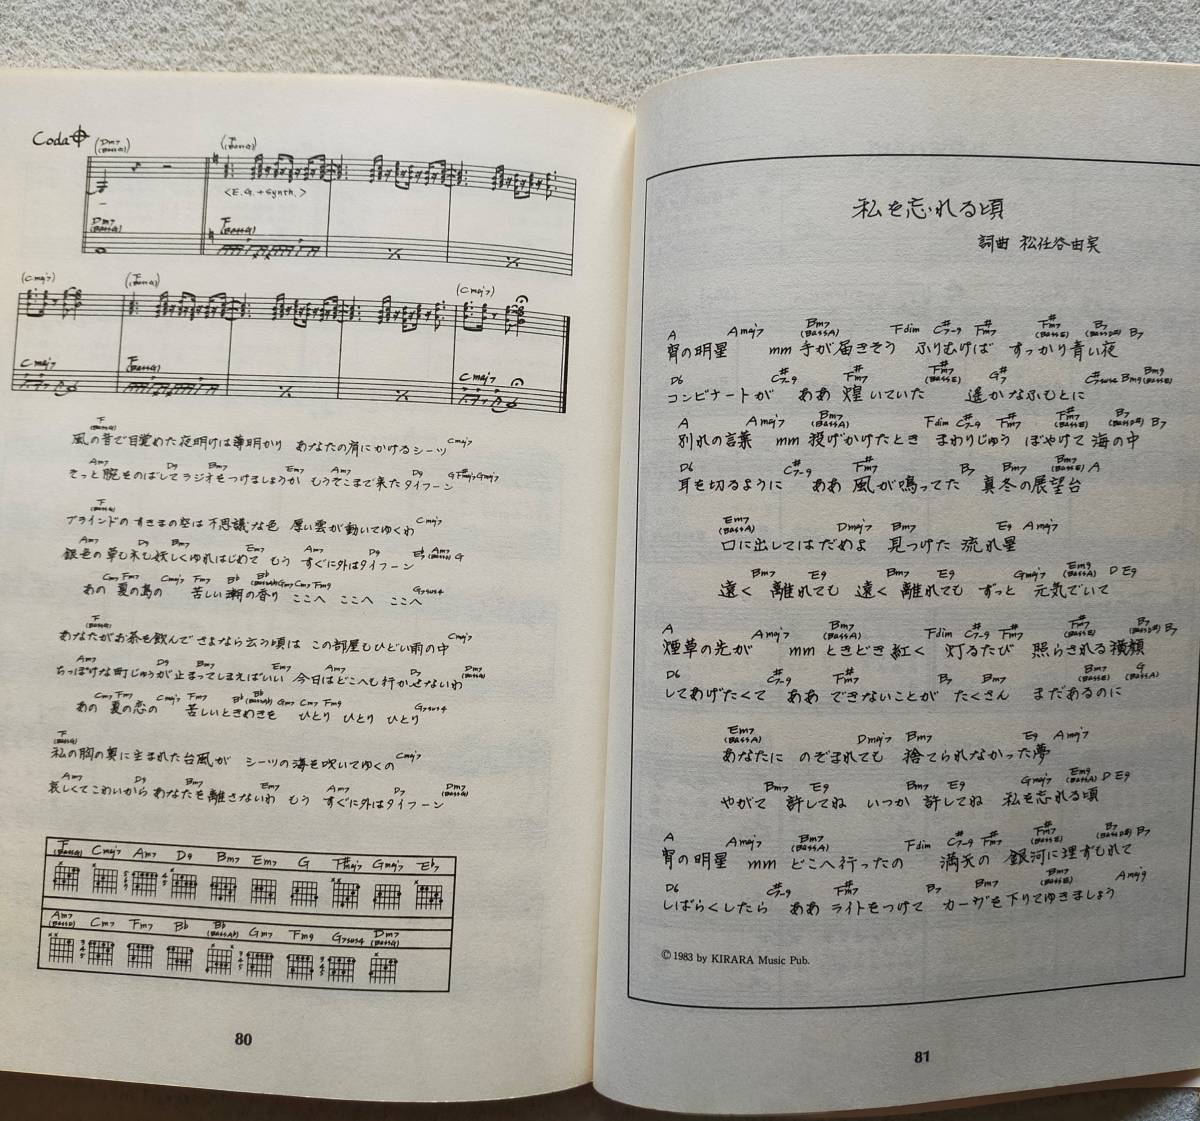 Coda
(Dm7 (Bass G)) (F (Bass G))
<E.G.+Synth.>
Dm7 (Bass G) F (Bass G)
(Cmaj7) (F (Bass G)) (Cmaj7)
Cmaj7 F (Bass G) Cmaj7
F (Bass G) Cmaj7
風の音で目覚めた夜明けは薄明かり あなたの肩にかけるシーツ
Am7 D9 Bm7 Em7 Am7 D9 G F#maj7 Gmaj7
そっと腕をのばしてラジオをつけましょうか もうそこまで来たタイフーン
F (Bass G) Cmaj7
ブラインドのすきまの空は不思議な色 厚い雲が動いてゆくわ
Am7 D9 Bm7 Em7 Am7 D9 E♭7 Am7 (Bass D) G
銀色の草も木も妖しくゆれはじめて もう すぐに外はタイフーン
Cm7 Fm7 Cmaj7 Fm7 B♭ B♭ (Bass A♭) Gm7 Cm7 Fm9 G7sus4
あの 夏の島の 苦しい潮の香り ここへ ここへ ここへ
F (Bass G) Cmaj7
あなたがお茶を飲んでさよなら云う頃は この部屋もひどい雨の中
Am7 D9 Bm7 Em7 Am7 D9 Dm7 (Bass G)
ちっぽけな町じゅうが止まってしまえばいい 今日はどこへも行かせないわ
Cm7 Fm7 Cmaj7 Fm7 B♭ B♭ (Bass A♭) Gm7 Cm7 Fm9 G7sus4
あの 夏の恋の 苦しいときめきを ひとり ひとり ひとり
F (Bass G) Cmaj7
私の胸の奥に生まれた台風が シーツの海を吹いてゆくの
Am7 D9 Bm7 Em7 Am7 D9 Dm7 (Bass G)
哀しくてこわいから あなたを離さないわ もう すぐに外はタイフーン
F (Bass G) Cmaj7 Am7 D9 Bm7 Em7 G F#maj7 Gmaj7 E♭7
Am7 (Bass D) Cm7 Fm7 B♭ B♭ (Bass A♭) Gm7 Fm9 G7sus4 Dm7 (Bass G)
80
私を忘れる頃
詞曲 松任谷由実
A Amaj7 Bm7 (Bass A) Fdim C#7-9 F#m7 F#m7 (Bass E) B7 (Bass D#) B7
宵の明星 mm 手が届きそう ふりむけば すっかり青い夜
D6 C#7-9 F#m7 F#m7 (Bass E) G#7 C#7sus4 Bm9 Bm9 (Bass E)
コンビナートが ああ 煌いていた 遥かなふもとに
A Amaj7 Bm7 (Bass A) Fdim C#7-9 F#m7 F#m7 (Bass E) B7 (Bass D#) B7
別れの言葉 mm 投げかけたとき まわりじゅう ぼやけて 海の中
D6 C#7-9 F#m7 B7 Bm7 Bm7 (Bass E) A
耳を切るように ああ 風が鳴ってた 真冬の展望台
Em7 (Bass A) Dmaj7 Bm7 E9 Amaj7
口に出してはだめよ 見つけた 流れ星
Bm7 E9 Bm7 E9 Gmaj7 Em9 (Bass A) D E9
遠く 離れても 遠く 離れても ずっと 元気でいて
A Amaj7 Bm7 (Bass A) Fdim C#7-9 F#m7 F#m7 (Bass E) B7 (Bass D#) B7
煙草の先が mm ときどき紅く 灯るたび 照らされる横顔
D6 C#7-9 F#m7 B7 Bm7 Bm7 (Bass E) G (Bass A)
してあげたくて ああ できないことが たくさん まだあるのに
Em7 (Bass A) Dmaj7 Bm7 E9 Amaj7
あなたに のぞまれても 捨てられなかった夢
Bm7 E9 Bm7 E9 Gmaj7 Em9 (Bass A) D E9
やがて 許してね いつか 許してね 私を忘れる頃
A Amaj7 Bm7 (Bass A) Fdim C#7-9 F#m7 F#m7 (Bass E) B7 (Bass D#) B7
宵の明星 mm どこへ行ったの 満天の 銀河に埋ずもれて
D6 C#7-9 F#m7 B7 Bm7 Bm7 (Bass E) Amaj9
しばらくしたら ああ ライトをつけて カーヴを下りてゆきましょう
© 1983 by KIRARA Music Pub.
81